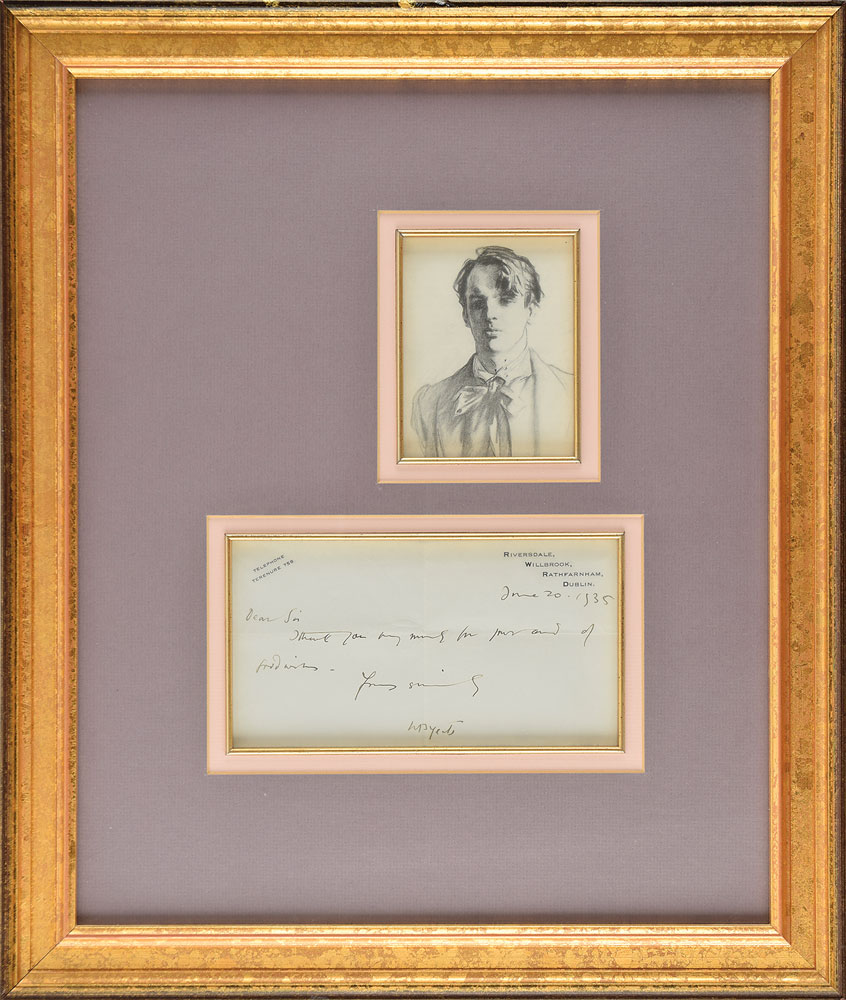 TELEPHONE
TERENURE 758
RIVERSDALE,
WILLBROOK,
RATHFARNHAM,
DUBLIN.
June 20. 1935
Dear Sir
I thank you very much for your card of
good wishes.
Yours sincerely
WB Yeats